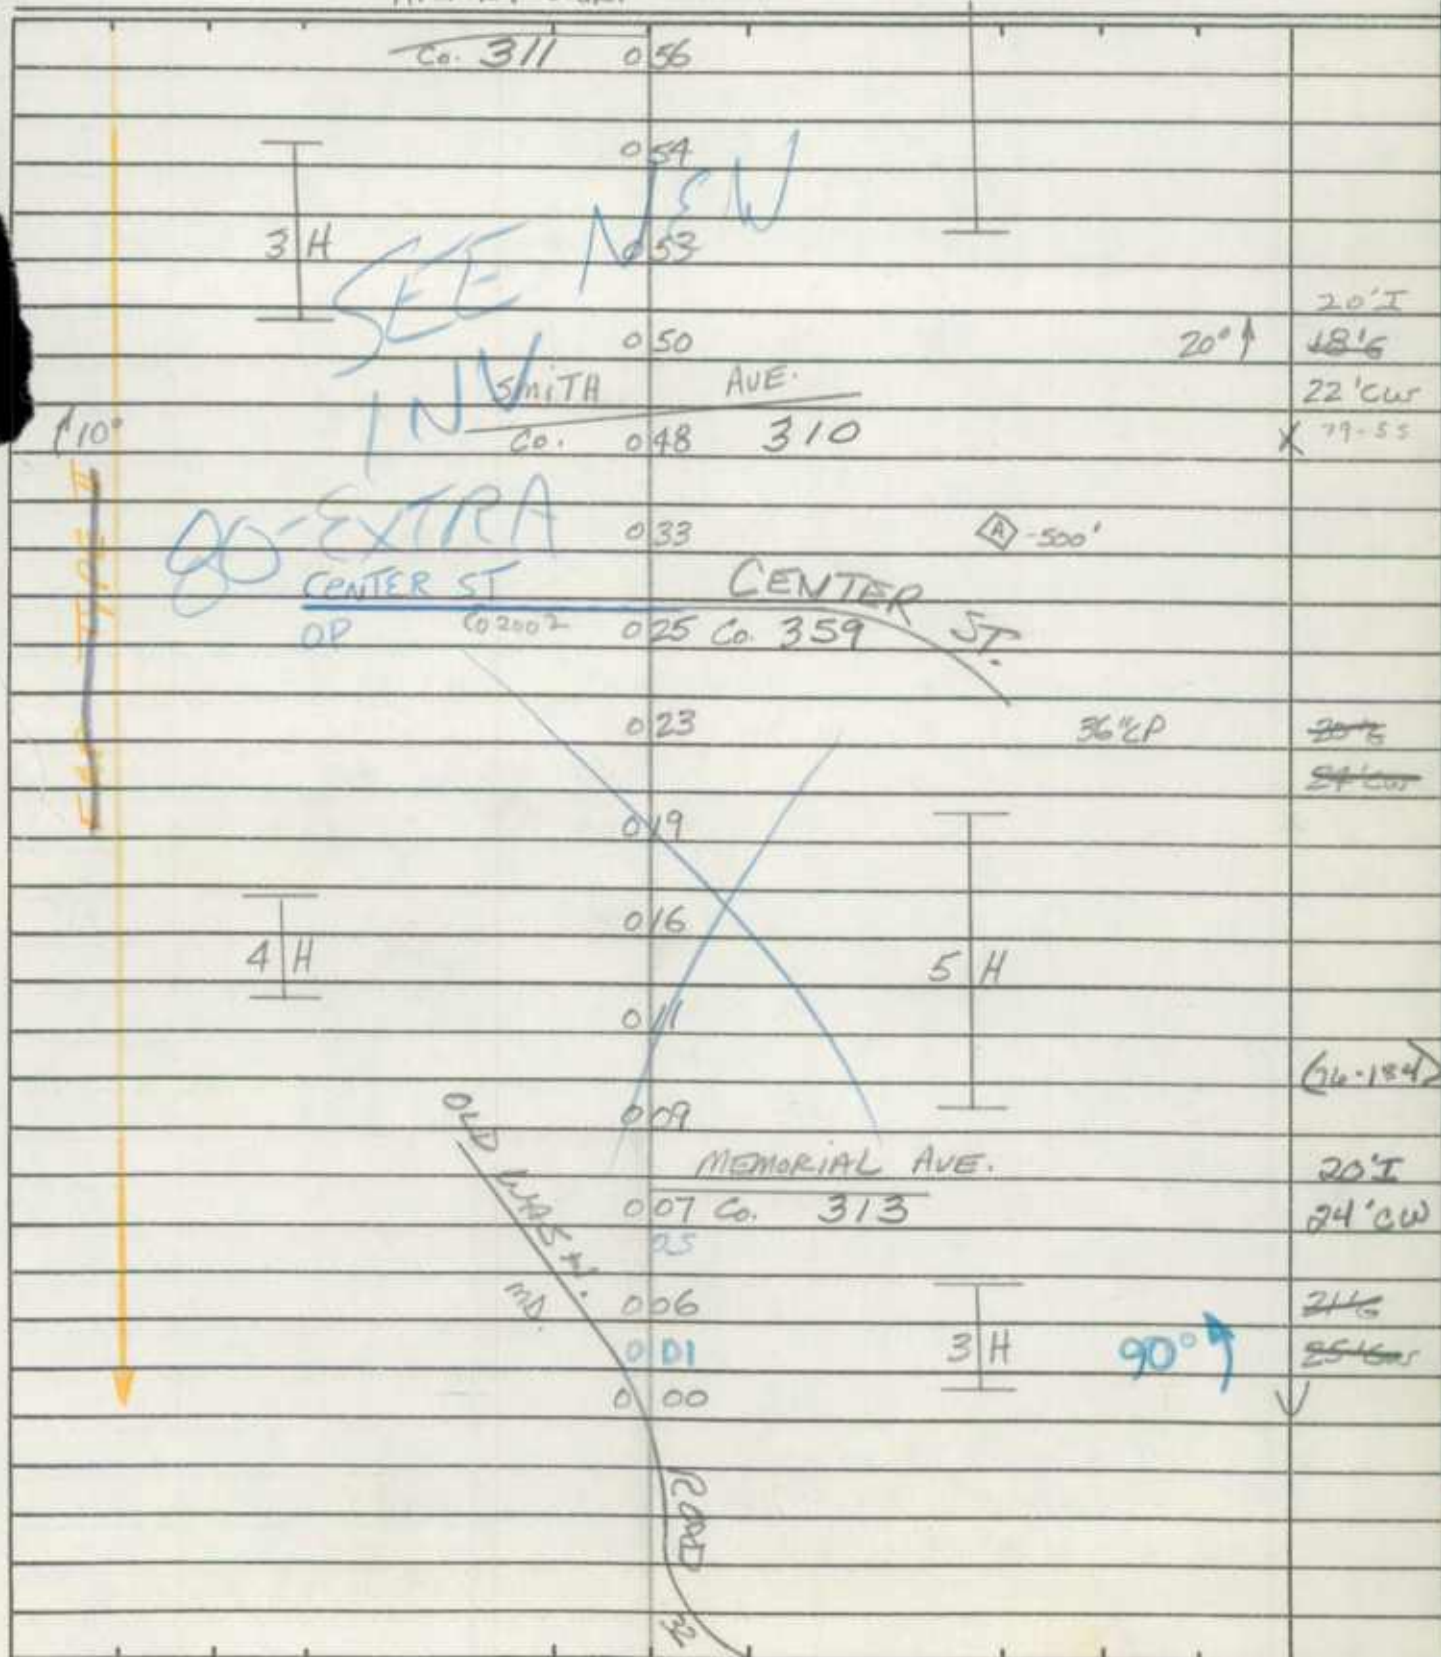 Co. 311 0 56
0 54
SEE NEW
3 H
0 53
20' I
0 50
20° 18'G
INV
SMITH AVE.
22' CW
10°
Co. 0 48 310
X 79-55
TYPE II
80-EXTRA
0 33
A -500'
CENTER ST
CENTER ST.
OP
Co 2002
0 25 Co. 359
0 23
36" CP
24' CW
0 19
0 16
4 H
5 H
0 11
(76-184)
0 09
OLD WASH.
MEMORIAL AVE.
20' I
0 07 Co. 313
24' CW
05
MD.
0 06
21'G
3 H
90°
0 01
0 00
ROAD
32